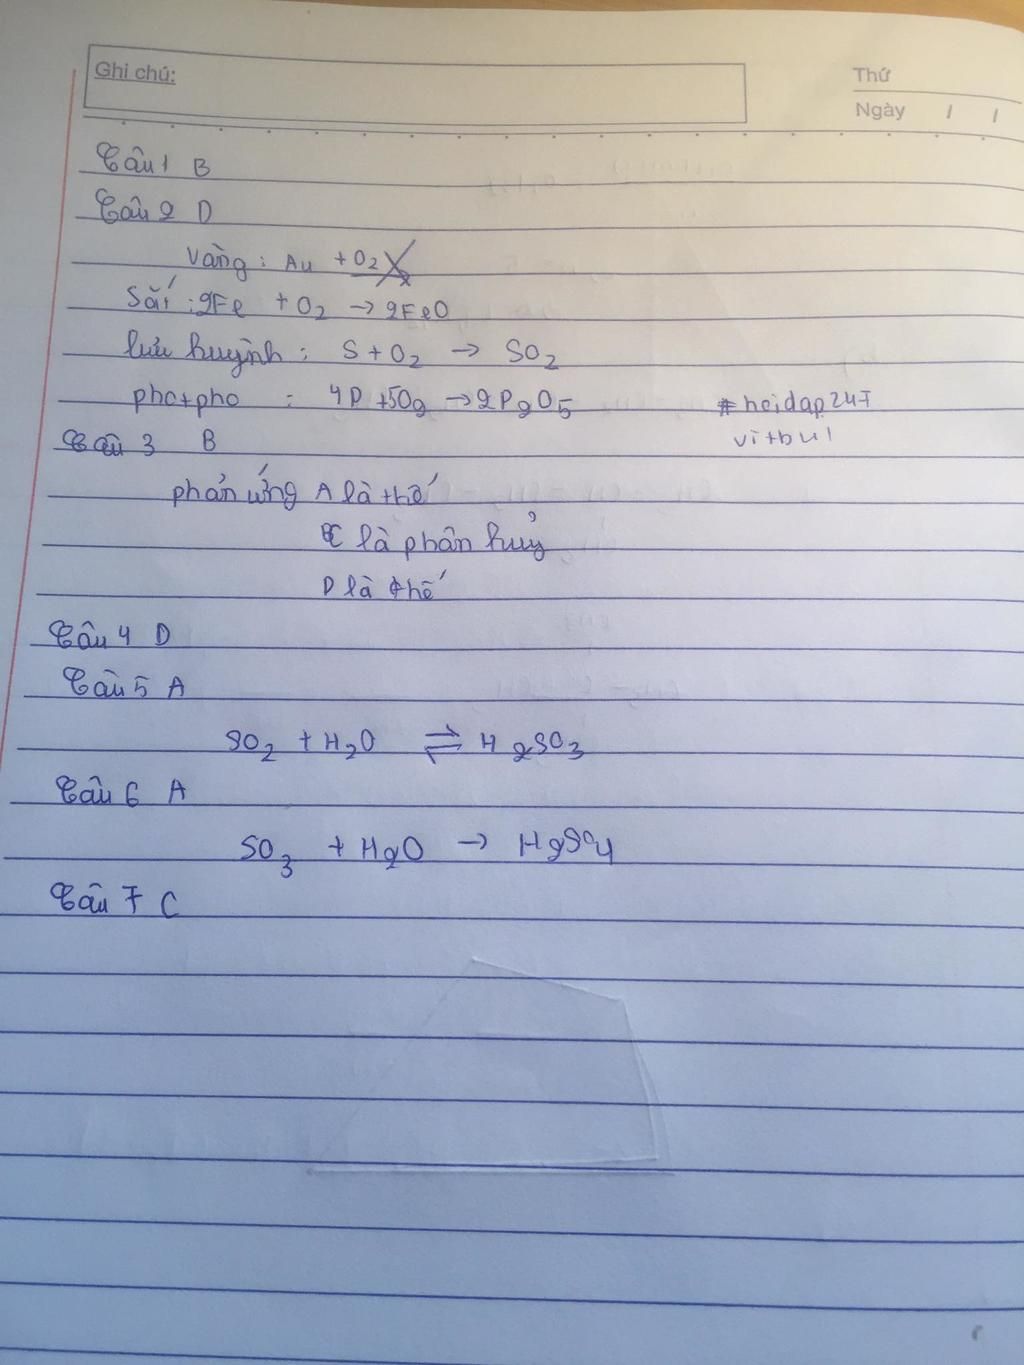 Ghi chú:
Thứ
Ngày / /
Câu 1 B
Câu 2 D
Vàng : Au + O2
Sắt : 2Fe + O2 → 2FeO
lưu huỳnh : S + O2 → SO2
photpho : 4P + 5O2 → 2P2O5
#hoidap247
vitbul
Câu 3 B
phản ứng A là thế
C là phân huỷ
D là thế
Câu 4 D
Câu 5 A
SO2 + H2O ⇌ H2SO3
Câu 6 A
SO3 + H2O → H2SO4
Câu 7 C